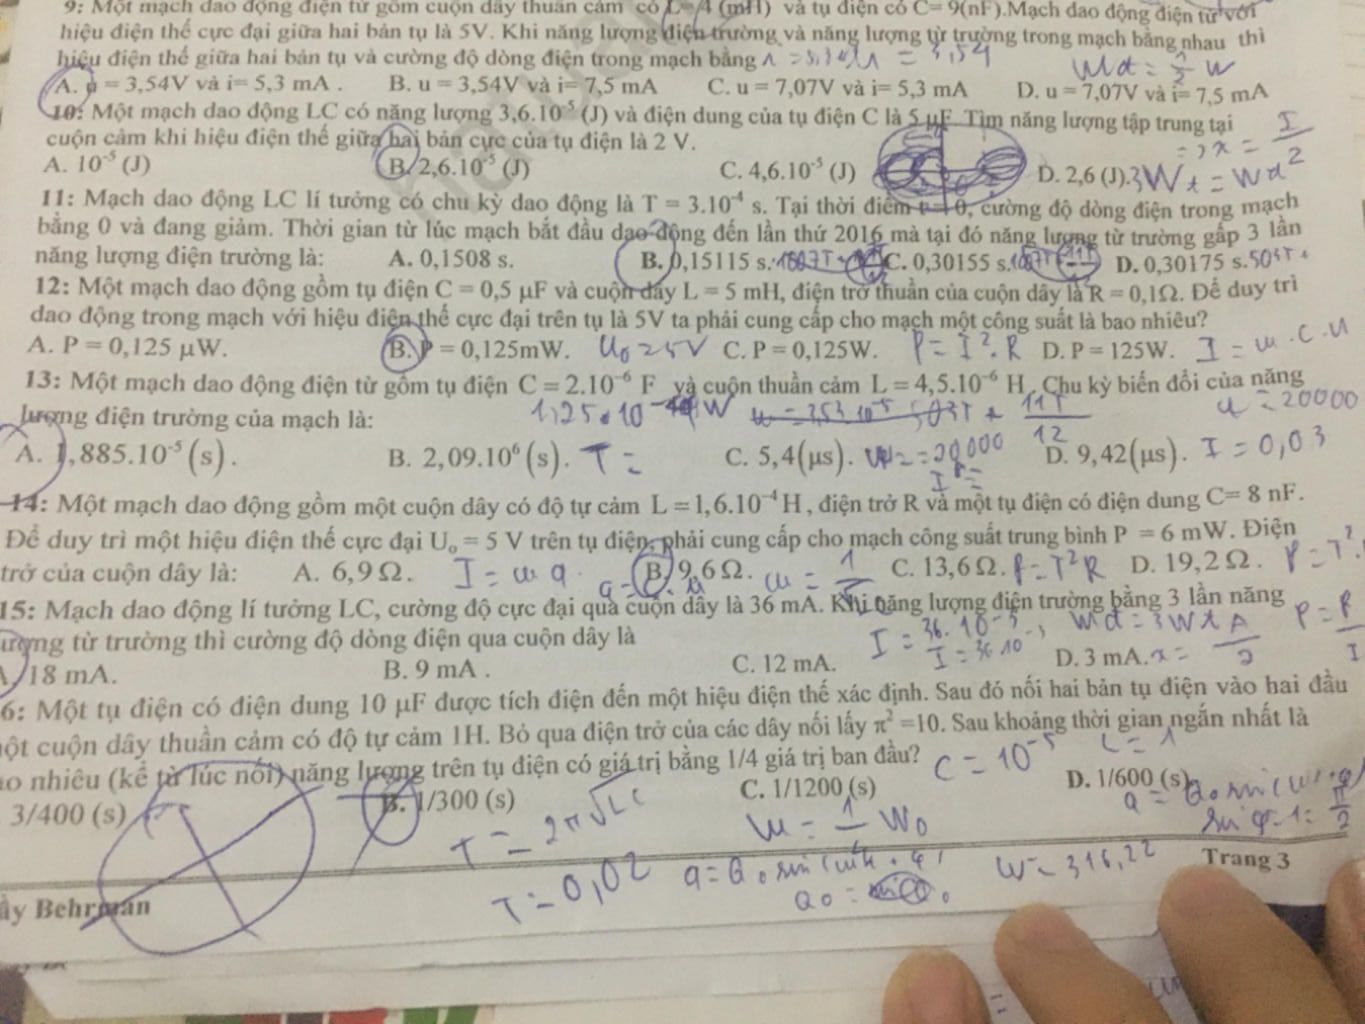 9: Một mạch dao động điện từ gồm cuộn dây thuần cảm có L= 4 (mH) và tụ điện có C= 9(nF).Mạch dao động điện từ với
hiệu điện thế cực đại giữa hai bản tụ là 5V. Khi năng lượng điện trường và năng lượng từ trường trong mạch bằng nhau thì
hiệu điện thế giữa hai bản tụ và cường độ dòng điện trong mạch bằng = 3,54
Wd = 1/2 W
A. u = 3,54V và i= 5,3 mA . B. u = 3,54V và i= 7,5 mA C. u = 7,07V và i= 5,3 mA D. u = 7,07V và i= 7,5 mA
10: Một mạch dao động LC có năng lượng 3,6.10⁻⁵ (J) và điện dung của tụ điện C là 5 μF. Tìm năng lượng tập trung tại
cuộn cảm khi hiệu điện thế giữa hai bản cực của tụ điện là 2 V. => x = I/2
A. 10⁻⁵ (J) B. 2,6.10⁻⁵ (J) C. 4,6.10⁻⁵ (J) D. 2,6 (J). 3Wt = Wd
11: Mạch dao động LC lí tưởng có chu kỳ dao động là T = 3.10⁻⁴ s. Tại thời điểm t = 0, cường độ dòng điện trong mạch
bằng 0 và đang giảm. Thời gian từ lúc mạch bắt đầu dao động đến lần thứ 2016 mà tại đó năng lượng từ trường gấp 3 lần
năng lượng điện trường là: A. 0,1508 s. B. 0,15115 s. C. 0,30155 s. D. 0,30175 s. 503T +
12: Một mạch dao động gồm tụ điện C = 0,5 μF và cuộn dây L = 5 mH, điện trở thuần của cuộn dây là R = 0,1Ω. Để duy trì
dao động trong mạch với hiệu điện thế cực đại trên tụ là 5V ta phải cung cấp cho mạch một công suất là bao nhiêu?
A. P = 0,125 μW. B. P = 0,125mW. U₀ = 5V C. P = 0,125W. P = I². R D. P = 125W. I = w. C. U
13: Một mạch dao động điện từ gồm tụ điện C = 2.10⁻⁶ F và cuộn thuần cảm L = 4,5.10⁻⁶ H. Chu kỳ biến đổi của năng
lượng điện trường của mạch là: 503T + 11T/12 = 20000
A. 1,885.10⁻⁵ (s) . B. 2,09.10⁶ (s). T = C. 5,4(μs). = 20000 D. 9,42(μs). I = 0,03
14: Một mạch dao động gồm một cuộn dây có độ tự cảm L = 1,6.10⁻⁴ H , điện trở R và một tụ điện có điện dung C= 8 nF.
Để duy trì một hiệu điện thế cực đại U₀ = 5 V trên tụ điện, phải cung cấp cho mạch công suất trung bình P = 6 mW. Điện
trở của cuộn dây là: A. 6,9 Ω. I = w q B. 9,6 Ω. C. 13,6 Ω. P = I²R D. 19,2 Ω . P = I².
15: Mạch dao động lí tưởng LC, cường độ cực đại qua cuộn dây là 36 mA. Khi năng lượng điện trường bằng 3 lần năng
ượng từ trường thì cường độ dòng điện qua cuộn dây là I = 36. 10⁻³ Wd = 3Wt
18 mA. B. 9 mA . C. 12 mA. D. 3 mA. x = A/2
6: Một tụ điện có điện dung 10 μF được tích điện đến một hiệu điện thế xác định. Sau đó nối hai bản tụ điện vào hai đầu
ột cuộn dây thuần cảm có độ tự cảm 1H. Bỏ qua điện trở của các dây nối lấy π² =10. Sau khoảng thời gian ngắn nhất là
ao nhiêu (kể từ lúc nối) năng lượng trên tụ điện có giá trị bằng 1/4 giá trị ban đầu? C = 10⁻⁵ L = 1
3/400 (s) B. 1/300 (s) C. 1/1200 (s) D. 1/600 (s)
T = 2π√LC W = 1/4 W₀
T = 0,02 W = 316,22 Trang 3
ầy Behrman